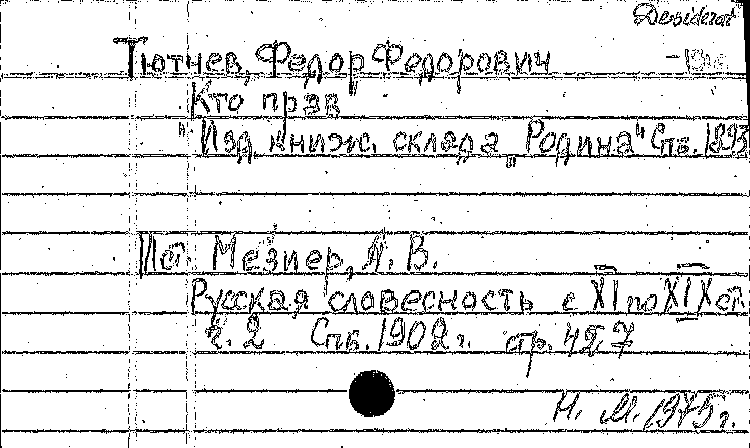 Desiderat
Тютчев, Федор Федорович
Кто прав
" Изд. книж. склада „Родина" Спб. 1893
Ист. Мезиер, А. В.
Русская словесность с XI по XIX ст.
ч. 2 Спб. 1902 г. стр. 427
Н. М. 1975 г.